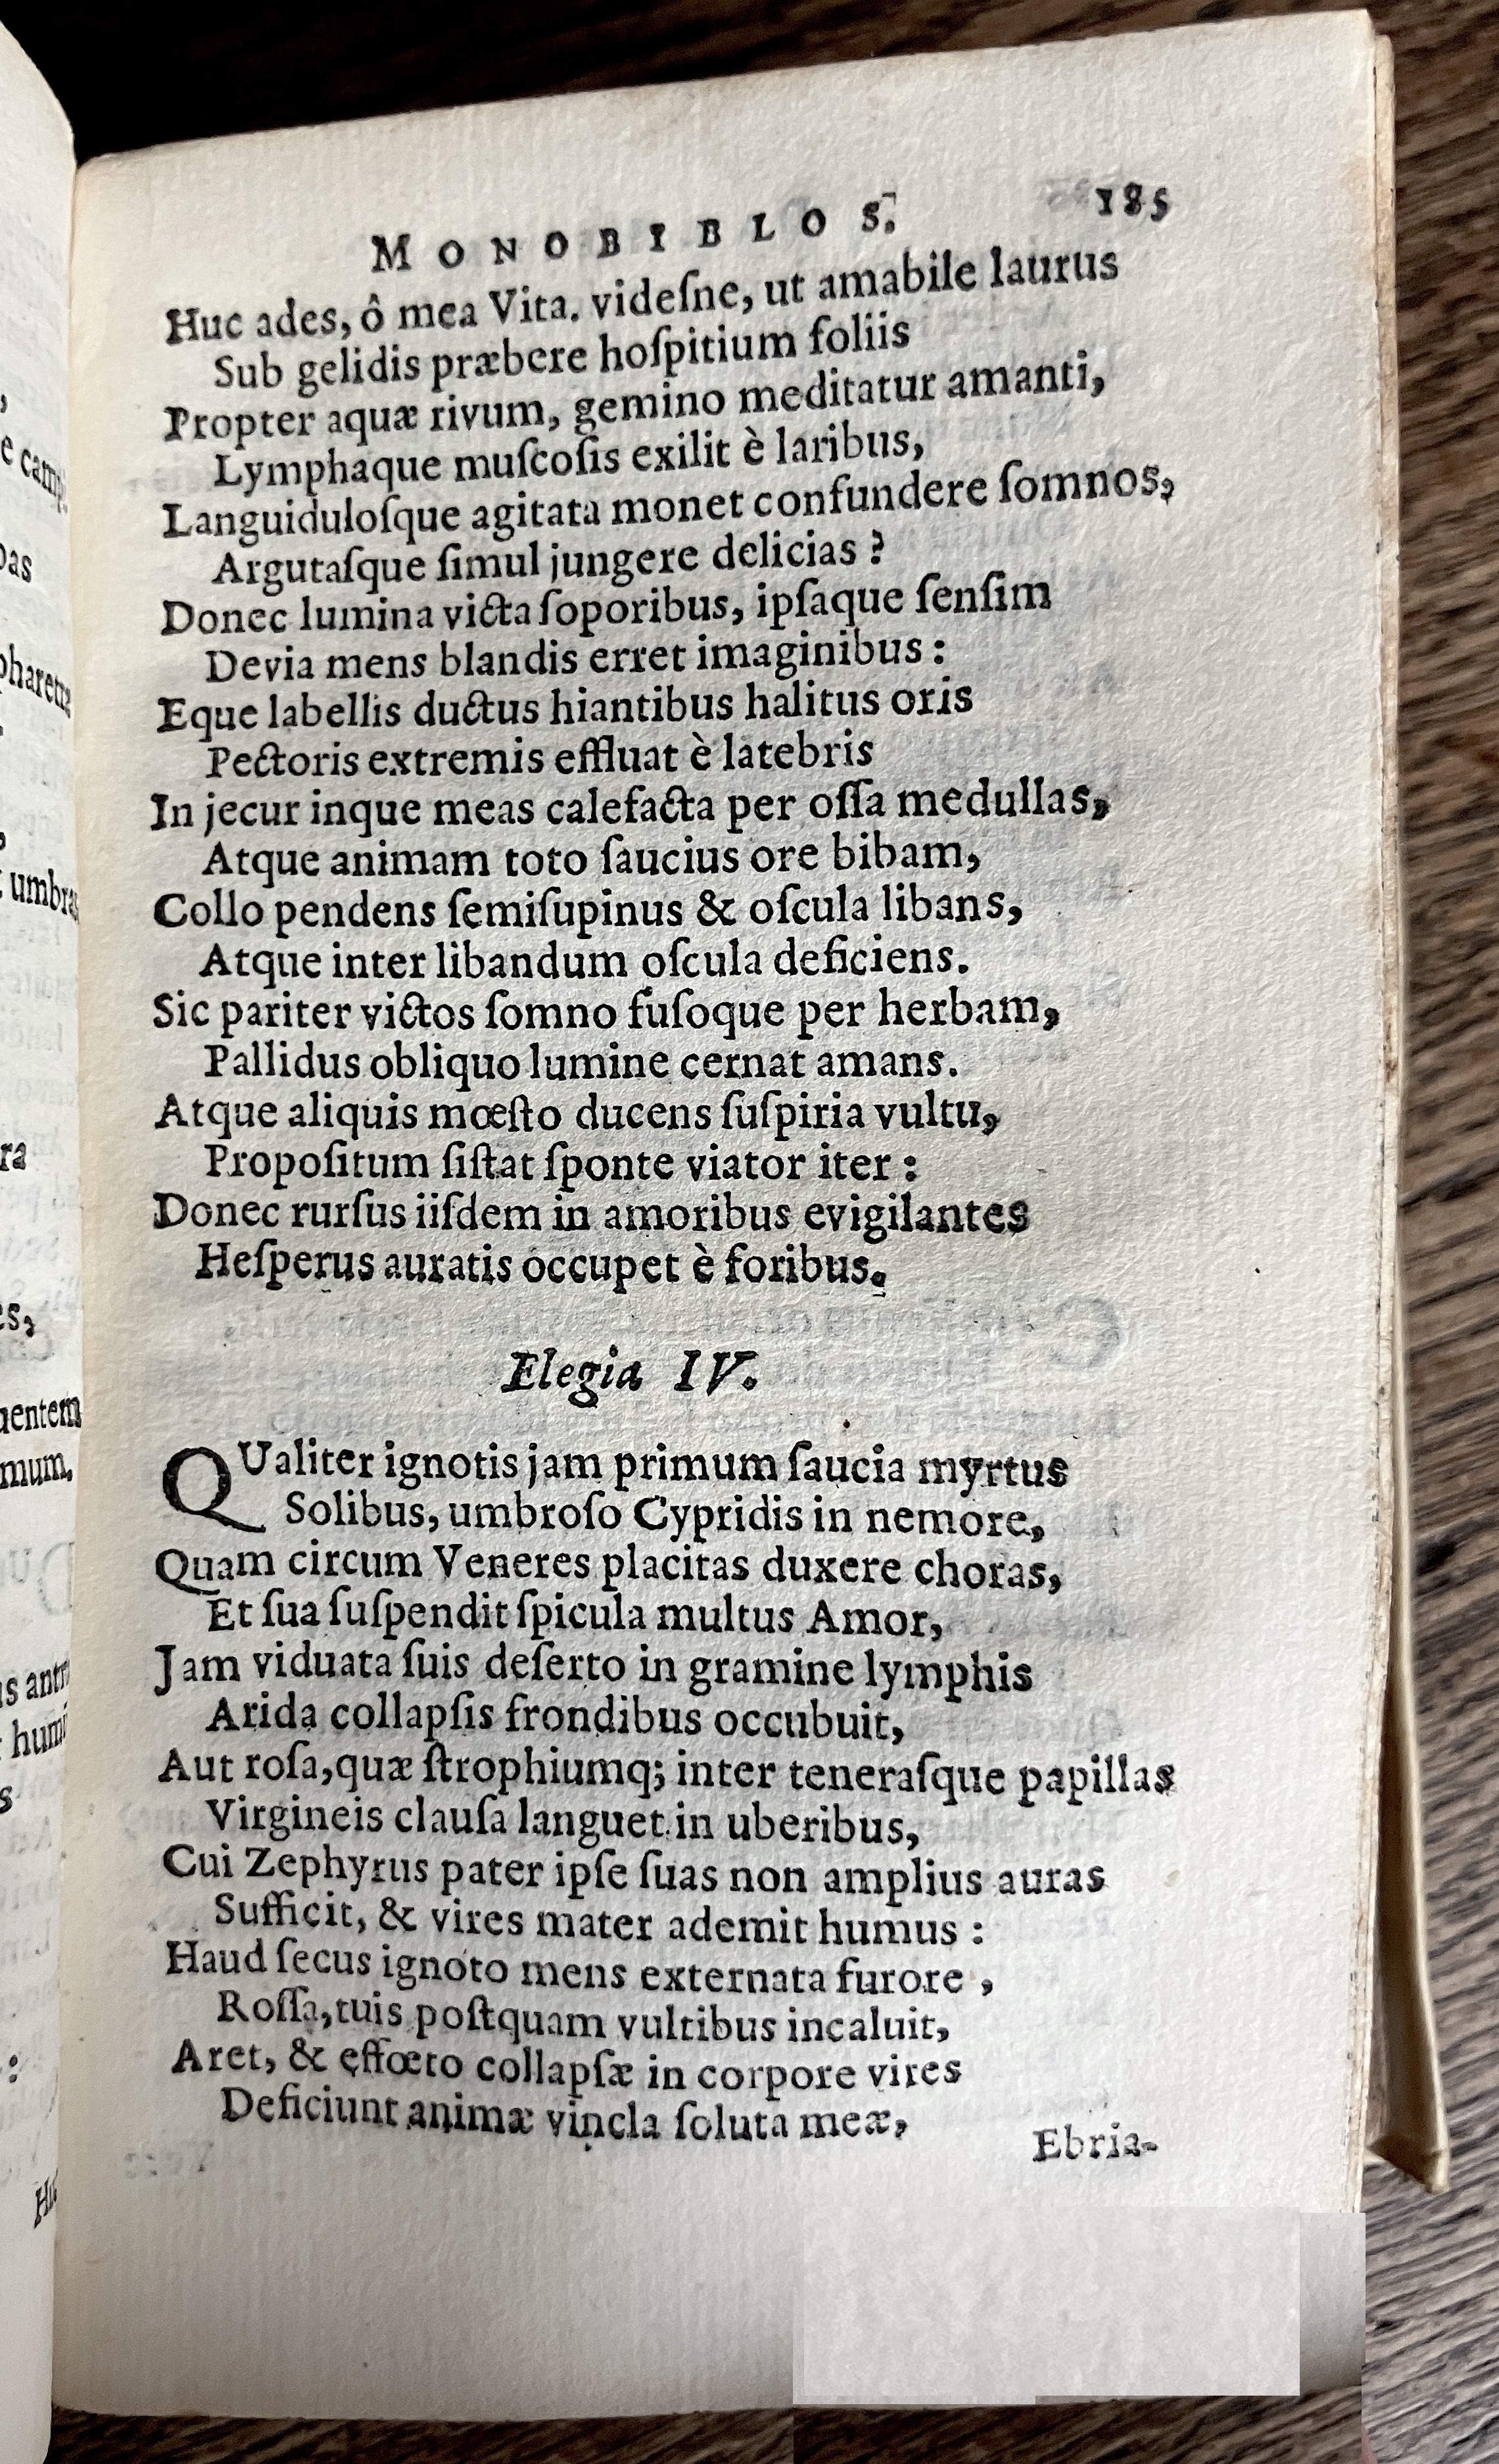 MONOBIBLOS. 185
Huc ades, ô mea Vita. videſne, ut amabile laurus
Sub gelidis præbere hoſpitium foliis
Propter aquæ rivum, gemino meditatur amanti,
Lymphaque muſcoſis exilit è laribus,
Languiduloſque agitata monet confundere ſomnos,
Argutaſque ſimul jungere delicias ?
Donec lumina victa ſoporibus, ipſaque ſenſim
Devia mens blandis erret imaginibus :
Eque labellis ductus hiantibus halitus oris
Pectoris extremis effluat è latebris
In jecur inque meas calefacta per oſſa medullas,
Atque animam toto ſaucius ore bibam,
Collo pendens ſemiſupinus & oſcula libans,
Atque inter libandum oſcula deficiens.
Sic pariter victos ſomno fuſoque per herbam,
Pallidus obliquo lumine cernat amans.
Atque aliquis mœſto ducens ſuſpiria vultu,
Propoſitum ſiſtat ſponte viator iter :
Donec rurſus iiſdem in amoribus evigilantes
Heſperus auratis occupet è foribus.
Elegia IV.
QUaliter ignotis jam primum ſaucia myrtus
Solibus, umbroſo Cypridis in nemore,
Quam circum Veneres placitas duxere choras,
Et ſua ſuſpendit ſpicula multus Amor,
Jam viduata ſuis deſerto in gramine lymphis
Arida collapſis frondibus occubuit,
Aut roſa, quæ ſtrophiumq; inter teneraſque papillas
Virgineis clauſa languet in uberibus,
Cui Zephyrus pater ipſe ſuas non amplius auras
Sufficit, & vires mater ademit humus :
Haud ſecus ignoto mens externata furore ,
Roſſa, tuis poſtquam vultibus incaluit,
Aret, & effœto collapſæ in corpore vires
Deficiunt animæ vincla ſoluta meæ,
Ebria-